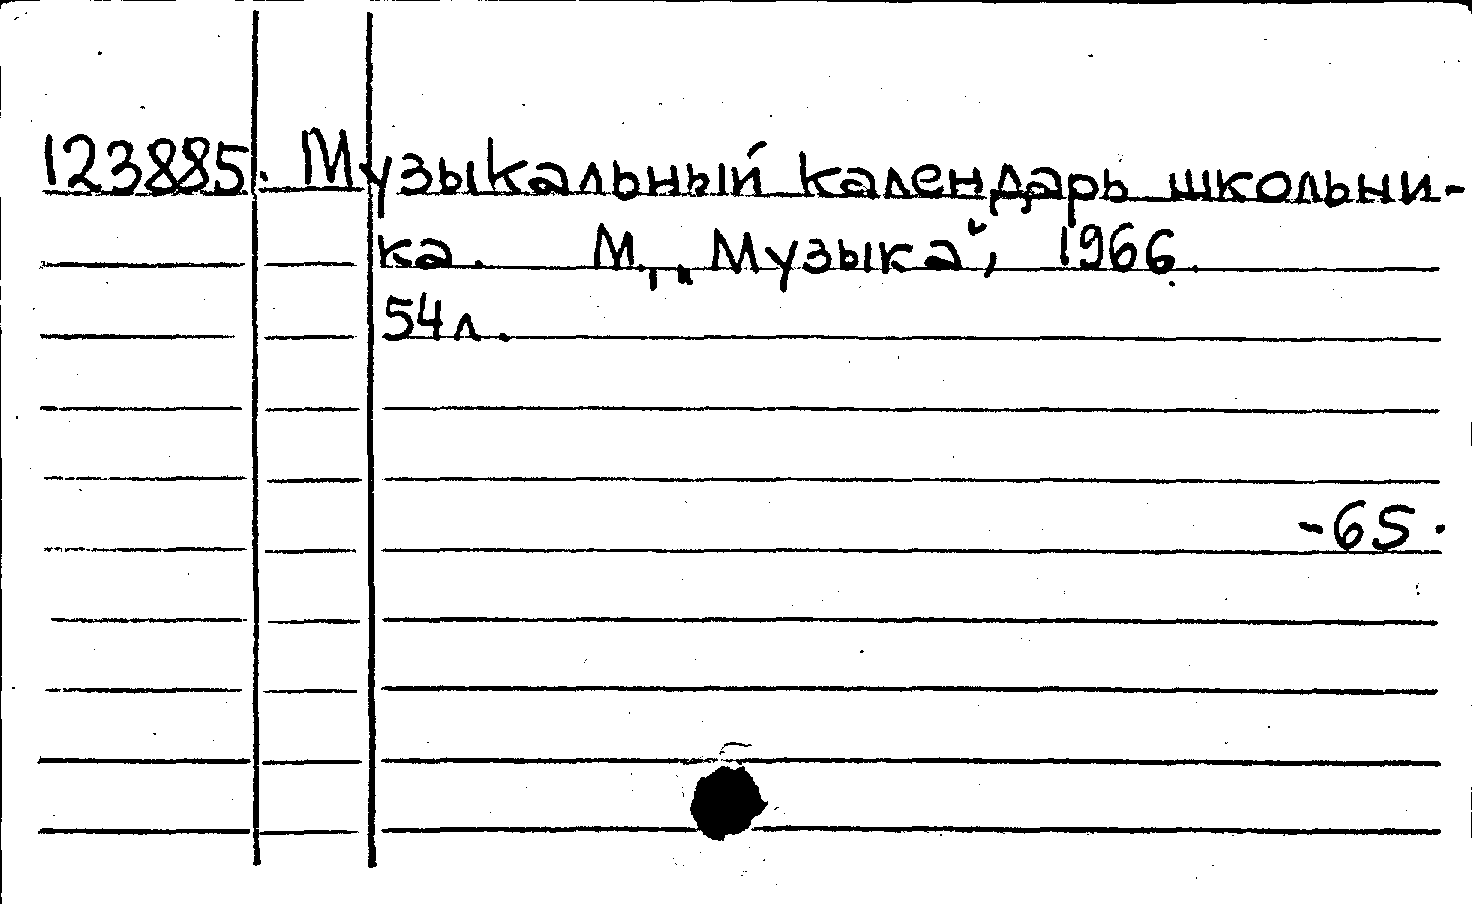 123885. Музыкальный календарь школьни-
ка. М., „Музыка“, 1966.
54л.
-65.